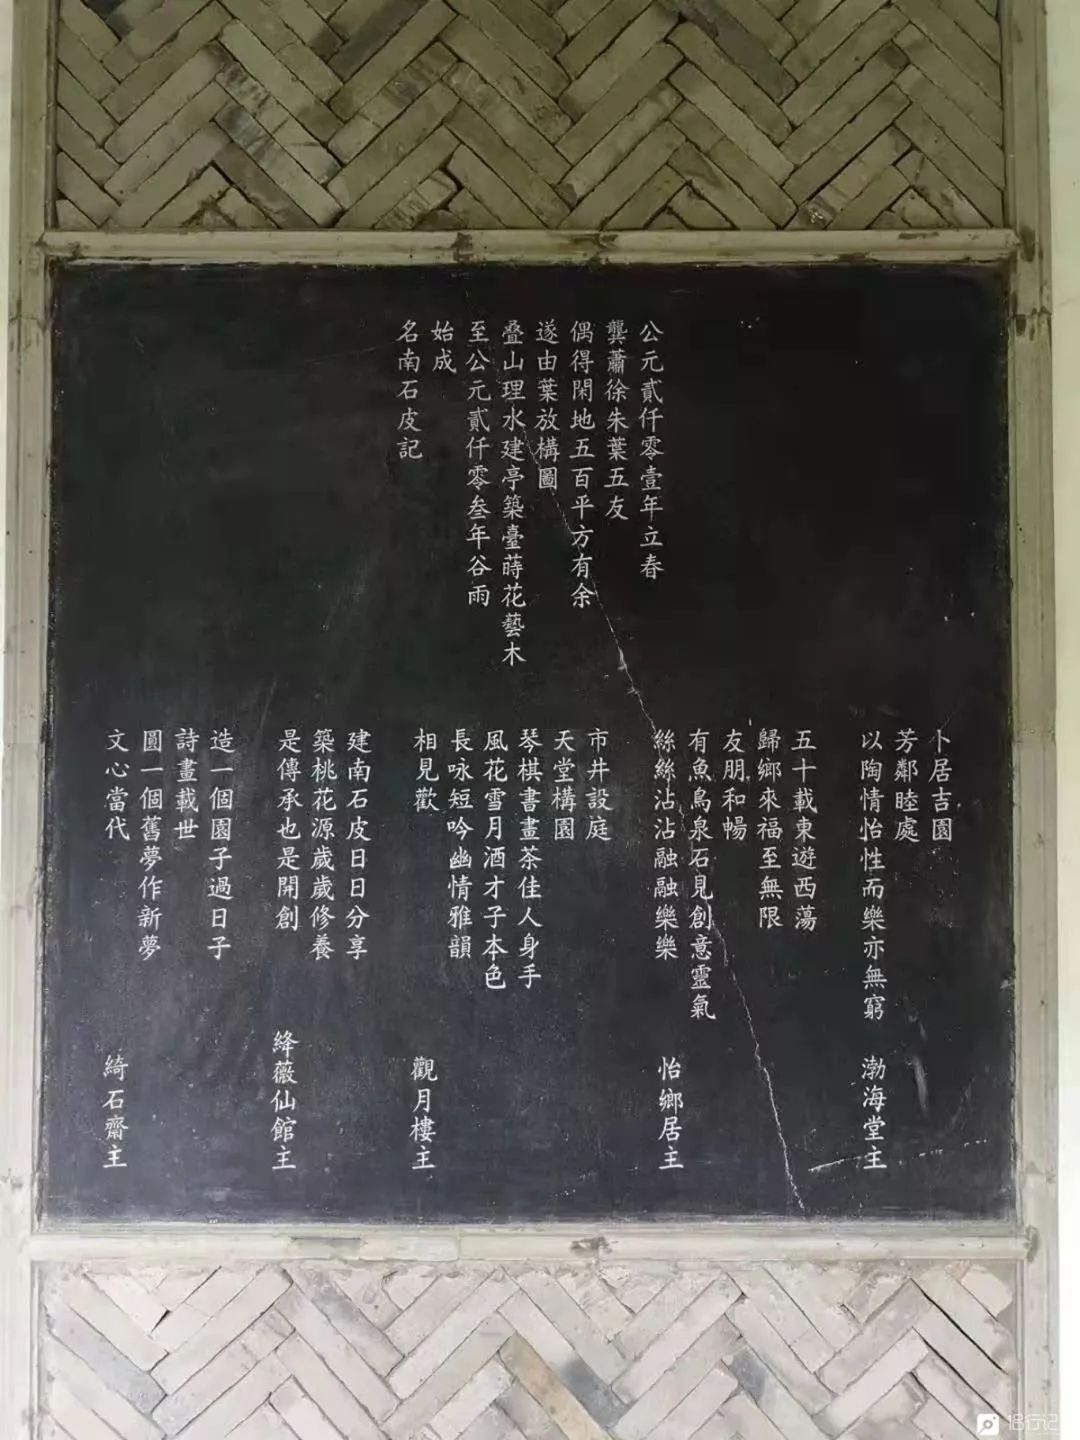 公元貳仟零壹年立春
龔蕭徐朱葉五友
偶得閑地五百平方有余
遂由葉放構圖
叠山理水建亭築臺蒔花藝木
至公元貳仟零叁年谷雨
始成
名南石皮記
卜居吉園
芳鄰睦處
以陶情怡性而樂亦無窮
渤海堂主
五十載東遊西蕩
歸鄉來福至無限
友朋和暢
有魚鳥泉石見創意靈氣
絲絲沾沾融融樂樂
怡鄉居主
市井設庭
天堂構園
琴棋書畫茶佳人身手
風花雪月酒才子本色
長咏短吟幽情雅韻
相見歡
觀月樓主
建南石皮日日分享
築桃花源歲歲修養
是傳承也是開創
絳薇仙館主
造一個園子過日子
詩畫載世
圓一個舊夢作新夢
文心當代
綺石齋主